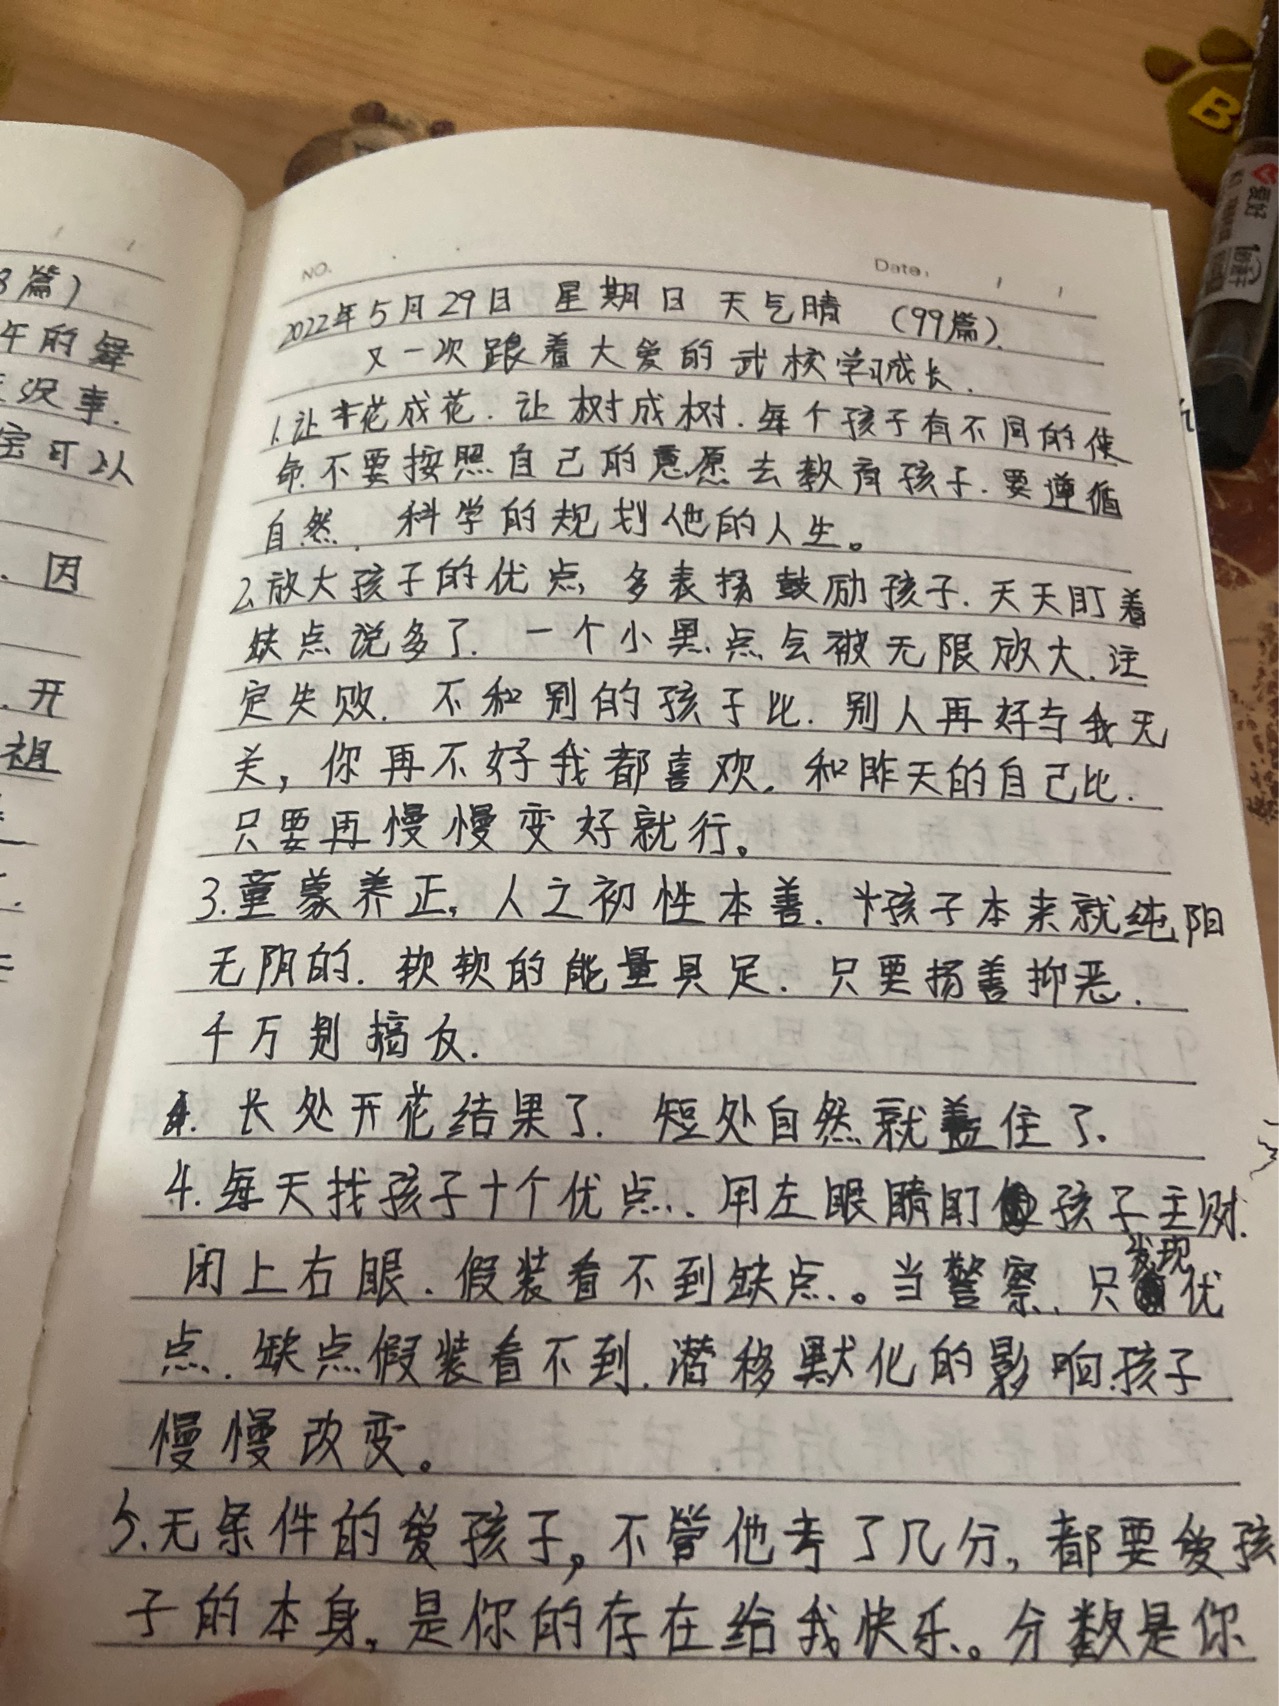 3篇)
午的
没事.
可以
. 因
. 开
祖
NO.
Date:
2022年5月29日 星期日 天气晴 (99篇).
又一次跟着大爱的武校学习成长.
1.让花成花.让树成树.每个孩子有不同的使
命.不要按照自己的意愿去教育孩子.要遵循
自然、科学的规划他的人生。
2.放大孩子的优点,多表扬鼓励孩子.天天盯着
缺点说多了.一个小黑点会被无限放大.注
定失败.不和别的孩子比.别人再好与我无
关,你再不好我都喜欢.和昨天的自己比.
只要再慢慢变好就行。
3.童蒙养正,人之初性本善.孩子本来就纯阳
无阴的.软软的能量具足.只要扬善抑恶.
千万别搞反.
长处开花结果了.短处自然就盖住了.
4.每天找孩子十个优点、用左眼睛盯孩子主财.
闭上右眼.假装看不到缺点。当警察.只发现优
点.缺点假装看不到.潜移默化的影响孩子
慢慢改变。
5.无条件的爱孩子,不管他考了几分,都要爱孩
子的本身,是你的存在给我快乐。分数是你
B
爱好